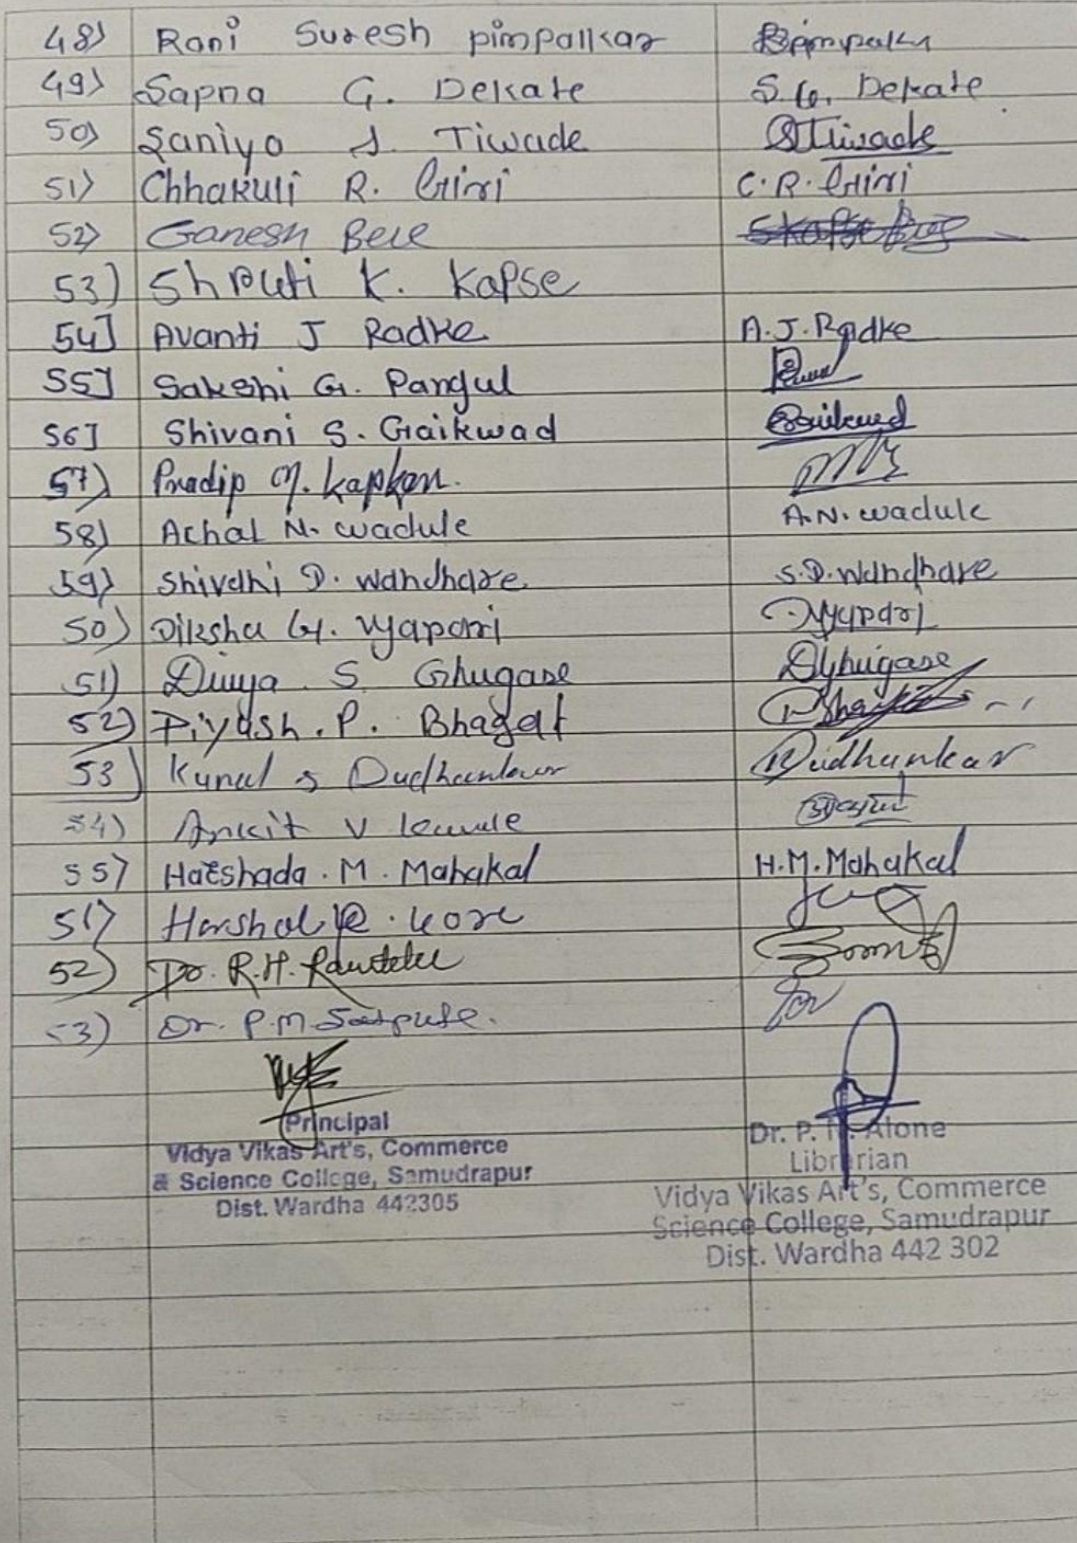 48) Rani Suresh pimpalkar Rpimpalkar
49) Sapna G. Dekate S.G. Dekate
50) Saniya S. Tiwade STiwade
51) Chhakuli R. Giri C.R. Giri
52) Ganesh Bele
53) Shruti K. Kapse
54] Avanti J Radke A.J. Radke
55] Sakshi G. Pangul
56] Shivani S. Gaikwad Gaikwad
57) Pradip M. Kapkar.
58) Achal N. wadule A.N. wadule
59) Shivani D. Wandhare S.D. Wandhare
50) Diksha G. Vyapari Vyapari
51) Divya S Ghugase DGhugase
52) Piyash. P. Bhagat
53) Kunal S Dudhankar Dudhankar
54) Ankit V
55) Harshada. M. Mahakal H.M. Mahakal
51) Harshal kore
52) Dr. R.H.
53) Dr. P.M Satpute.
Principal
Vidya Vikas Art's, Commerce
& Science College, Samudrapur
Dist. Wardha 442305
Dr. P. N. Alone
Librarian
Vidya Vikas Art's, Commerce
Science College, Samudrapur
Dist. Wardha 442 302